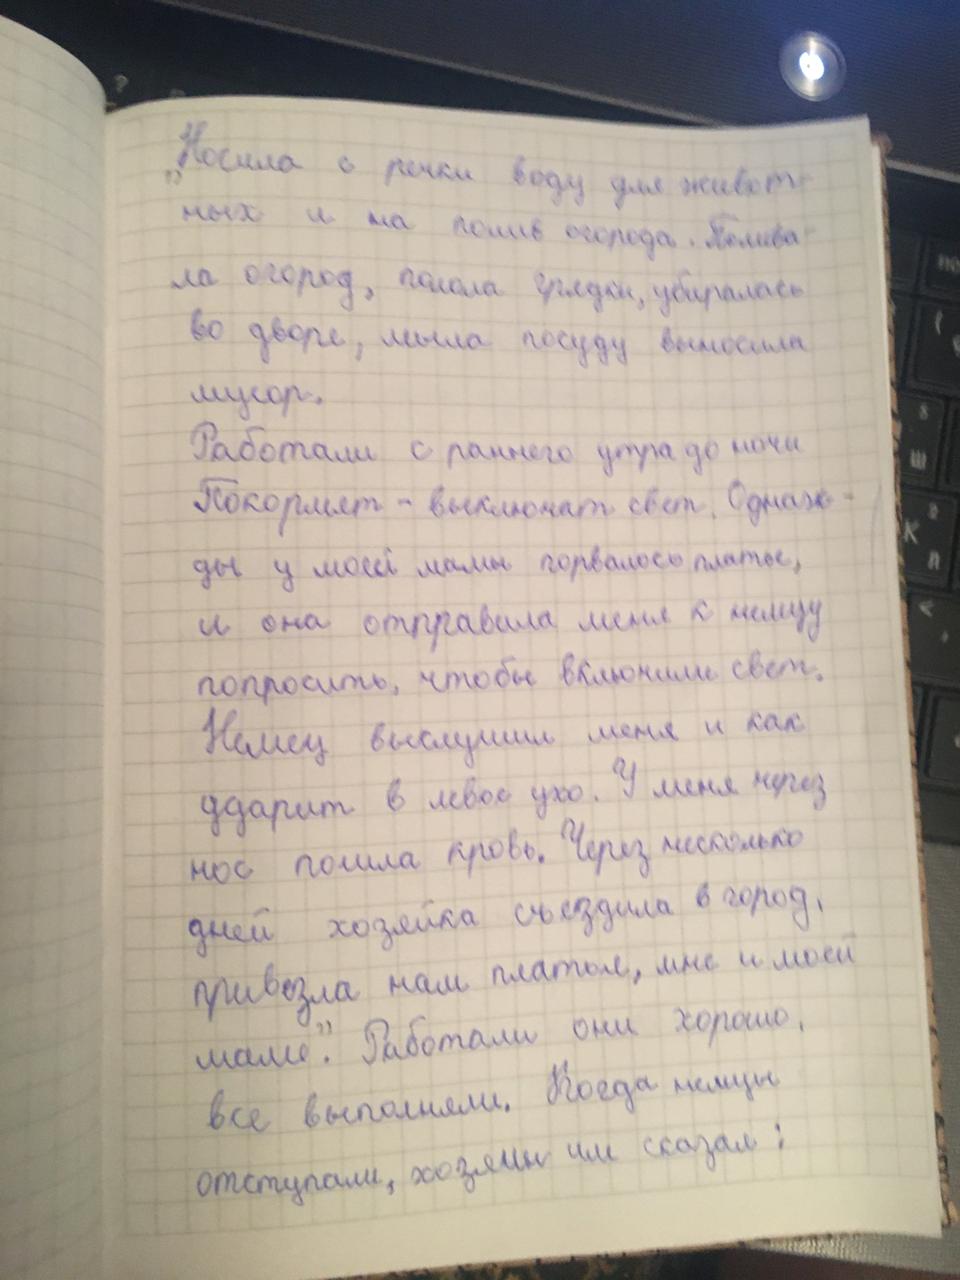 „Носила с речки воду для живот-
ных и на полив огорода. Полива-
ла огород, полола грядки, убиралась
во дворе, мыла посуду выносила
мусор.
Работали с раннего утра до ночи
Покормят - выключат свет. Однаж-
ды у моей мамы порвалось платье,
и она отправила меня к немцу
попросить, чтобы включили свет.
Немец выслушил меня и как
ударит в левое ухо. У меня через
нос пошла кровь. Через несколько
дней хозяйка съездила в город,
привезла нам платья, мне и моей
маме”. Работали они хорошо,
все выполняли. Когда немцы
отступали, хозяин им сказал:
?
8
Ш
К
Л